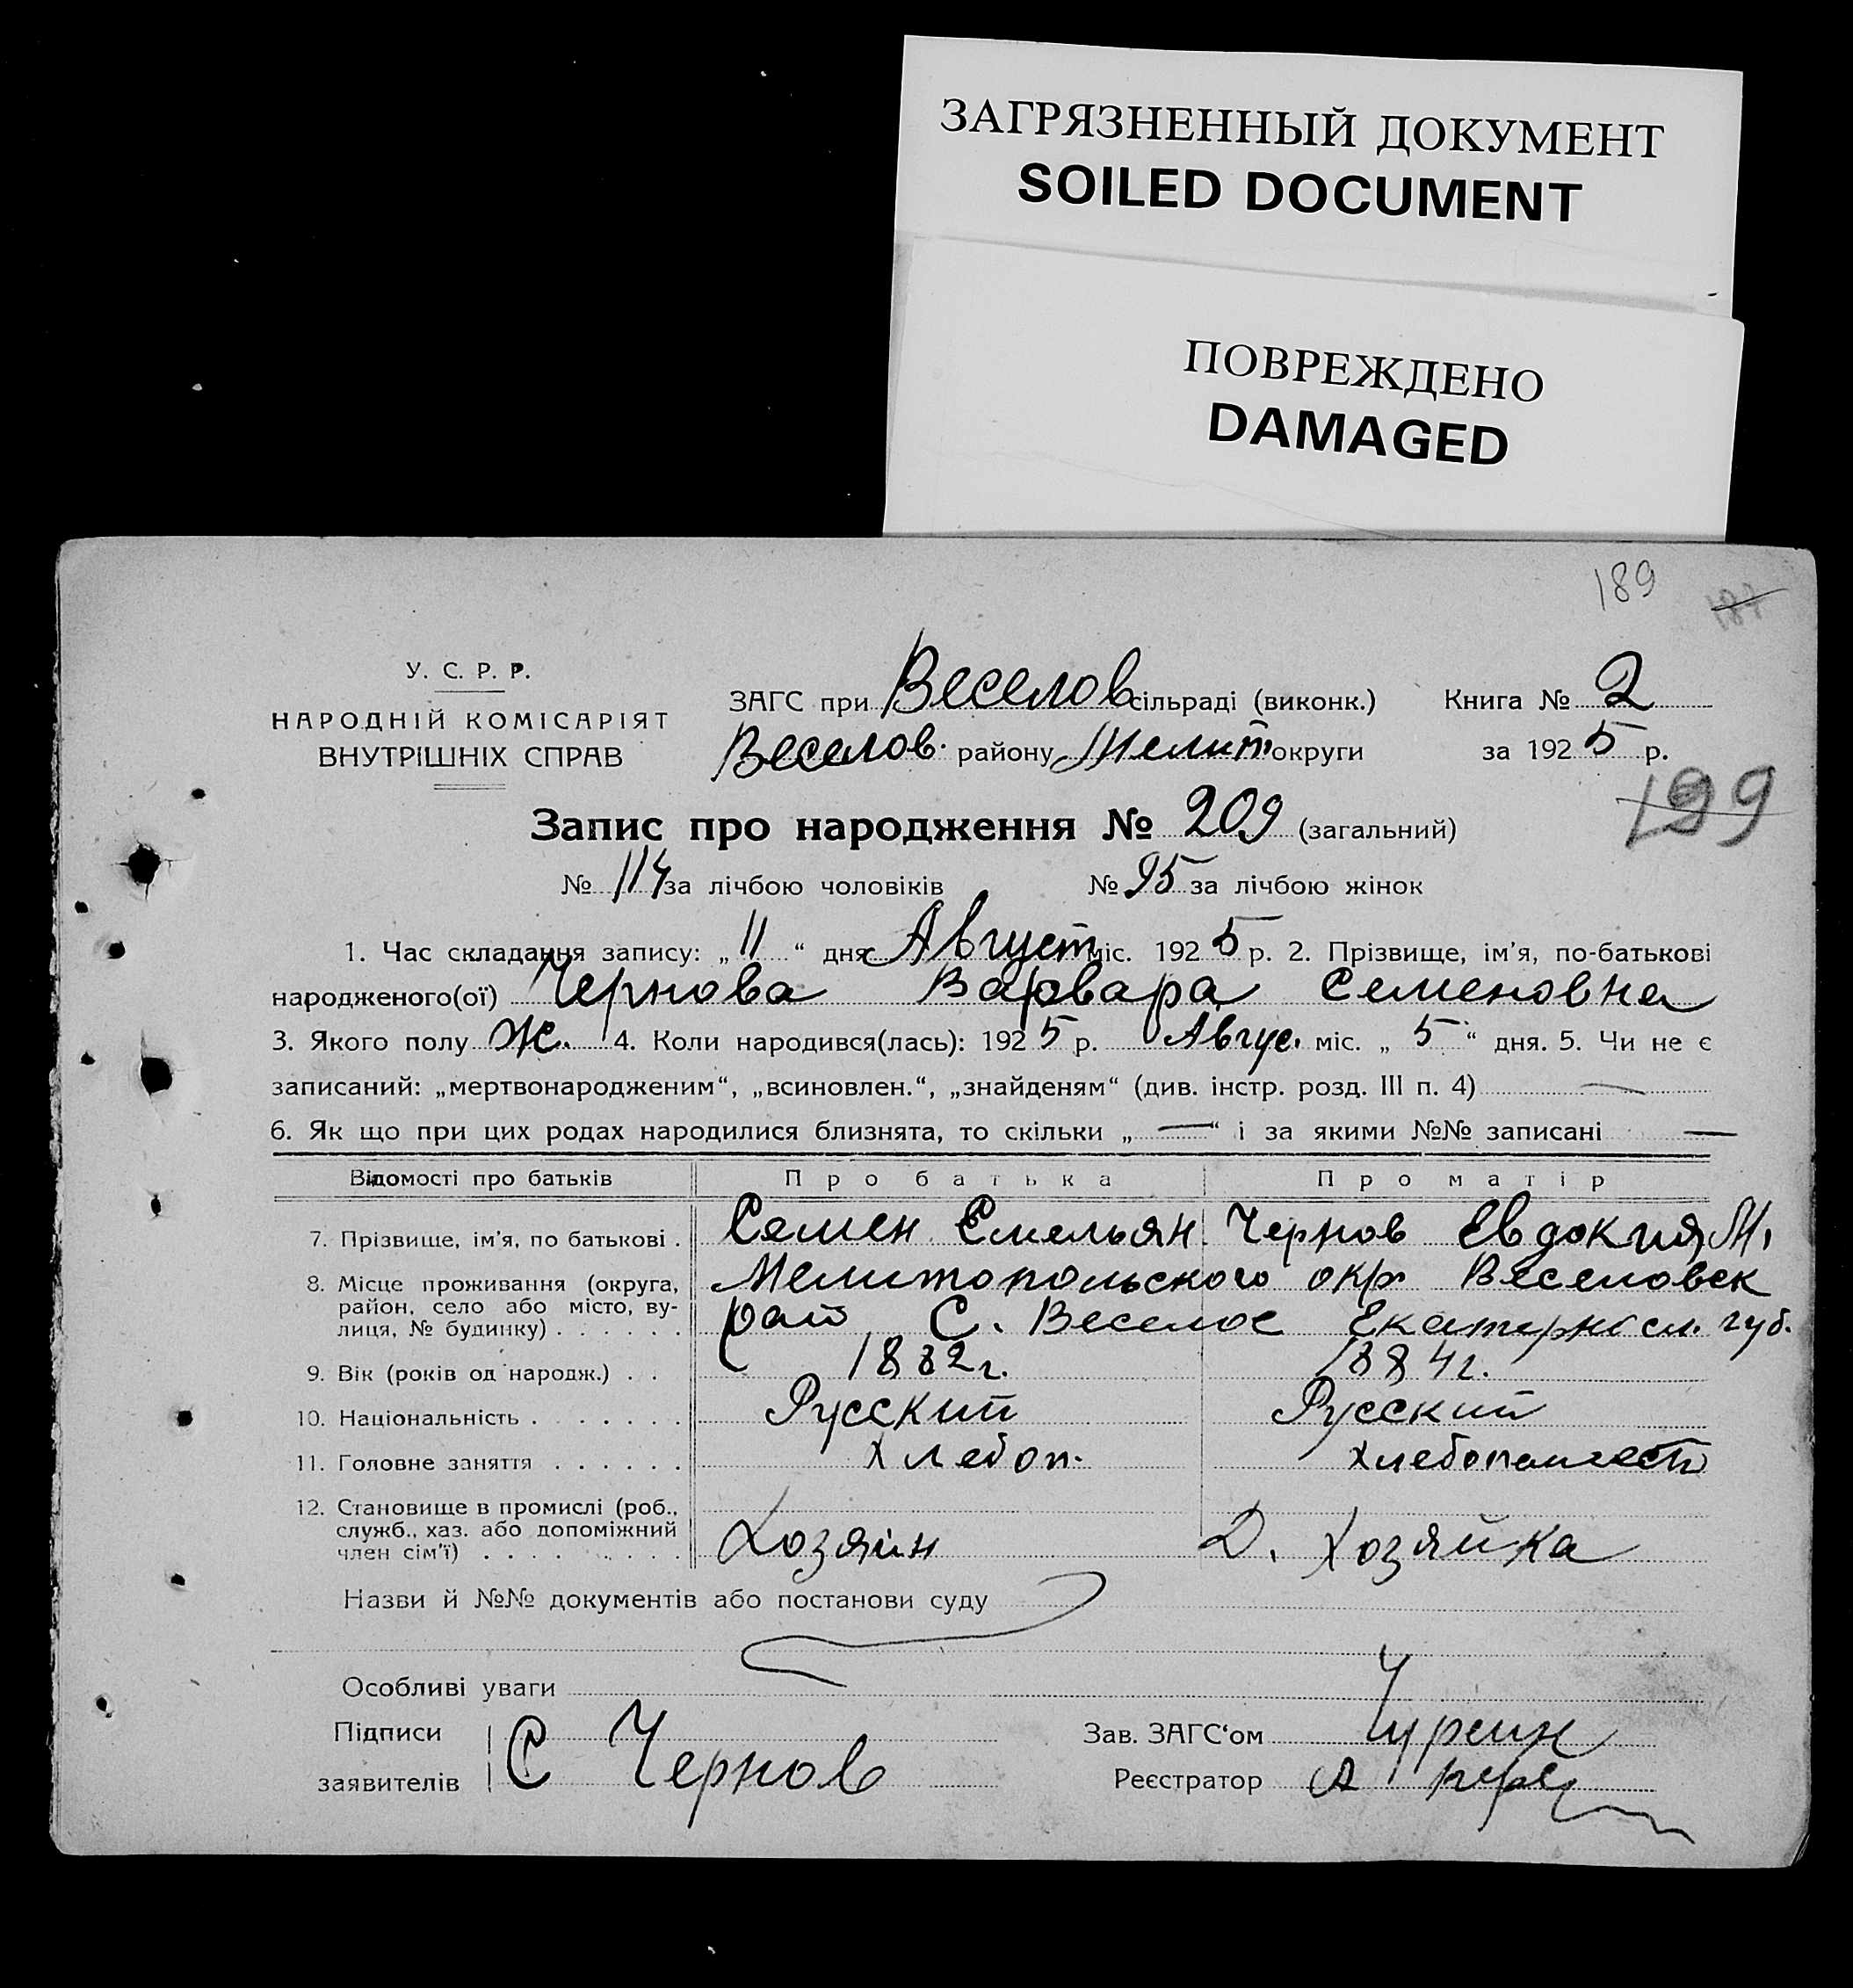 ЗАГРЯЗНЕННЫЙ ДОКУМЕНТ
SOILED DOCUMENT
ПОВРЕЖДЕНО
DAMAGED
189 187
У. С. Р. Р.
НАРОДНІЙ КОМІСАРІЯТ
ВНУТРІШНІХ СПРАВ
ЗАГС при Веселов сільраді (виконк.) Книга № 2
Веселов. району Мелит. округи за 1925 р.
199
Запис про народження № 209 (загальний)
№ 114 за лічбою чоловіків № 95 за лічбою жінок
1. Час складання запису: „ 11 “ дня Август міс. 1925 р. 2. Прізвище, ім'я, по-батькові
народженого(ої) Чернова Варвара Семеновна
3. Якого полу Ж. 4. Коли народився(лась): 1925 р. Авгус. міс. „ 5 “ дня. 5. Чи не є
записаний: „мертвонародженим“, „всиновлен.“, „знайденям“ (див. інстр. розд. III п. 4) —
6. Як що при цих родах народилися близнята, то скільки „ — “ і за якими №№ записані —
Відомості про батьків Про батька Про матір
7. Прізвище, ім'я, по батькові . Семен Емельян. Чернов Евдокия М.
8. Місце проживання (округа, Мелитопольского окр Веселовск
район, село або місто, ву-
лиця, № будинку) . . . . . . рай С. Веселое Екатериносл. губ.
9. Вік (років од народж.) . . 1882 г. 1884 г.
10. Національність . . . . . . . Русский Русский
11. Головне заняття . . . . . . Хлебоп. хлебопашест
12. Становище в промислі (роб.,
служб., хаз. або допоміжний
член сім'ї) . . . . . . . . . Хозяин Д. Хозяйка
Назви й №№ документів або постанови суду
Особливі уваги
Підписи
заявителів С Чернов
Зав. ЗАГС‘ом Чурсин
Реєстратор А